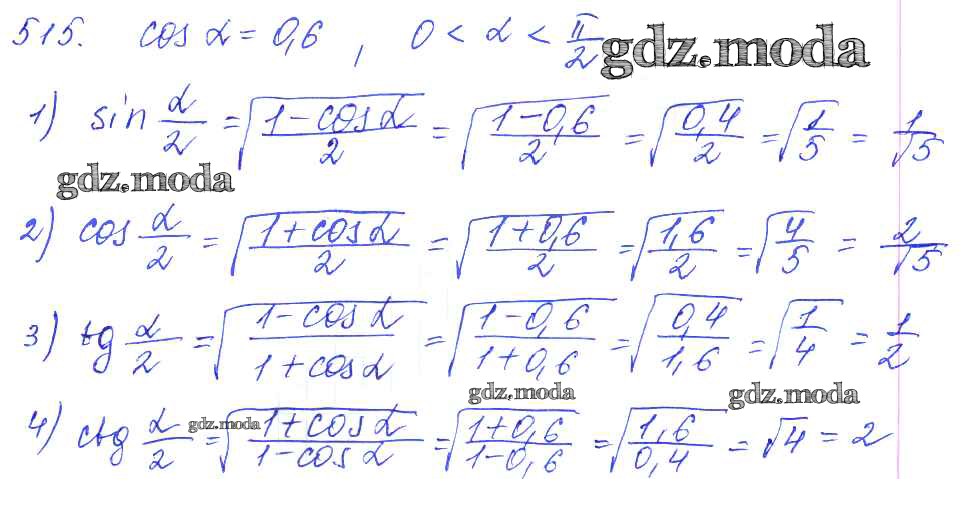 515. cos α = 0,6 , 0 < α < π/2 gdz.moda
1) sin α/2 = √((1-cos α)/2) = √((1-0,6)/2) = √(0,4/2) = √(1/5) = 1/√5
gdz.moda
2) cos α/2 = √((1+cos α)/2) = √((1+0,6)/2) = √(1,6/2) = √(4/5) = 2/√5
3) tg α/2 = √((1-cos α)/(1+cos α)) = √((1-0,6)/(1+0,6)) = √(0,4/1,6) = √(1/4) = 1/2
gdz.moda gdz.moda
4) ctg α/2 gdz.moda = √((1+cos α)/(1-cos α)) = √((1+0,6)/(1-0,6)) = √(1,6/0,4) = √4 = 2